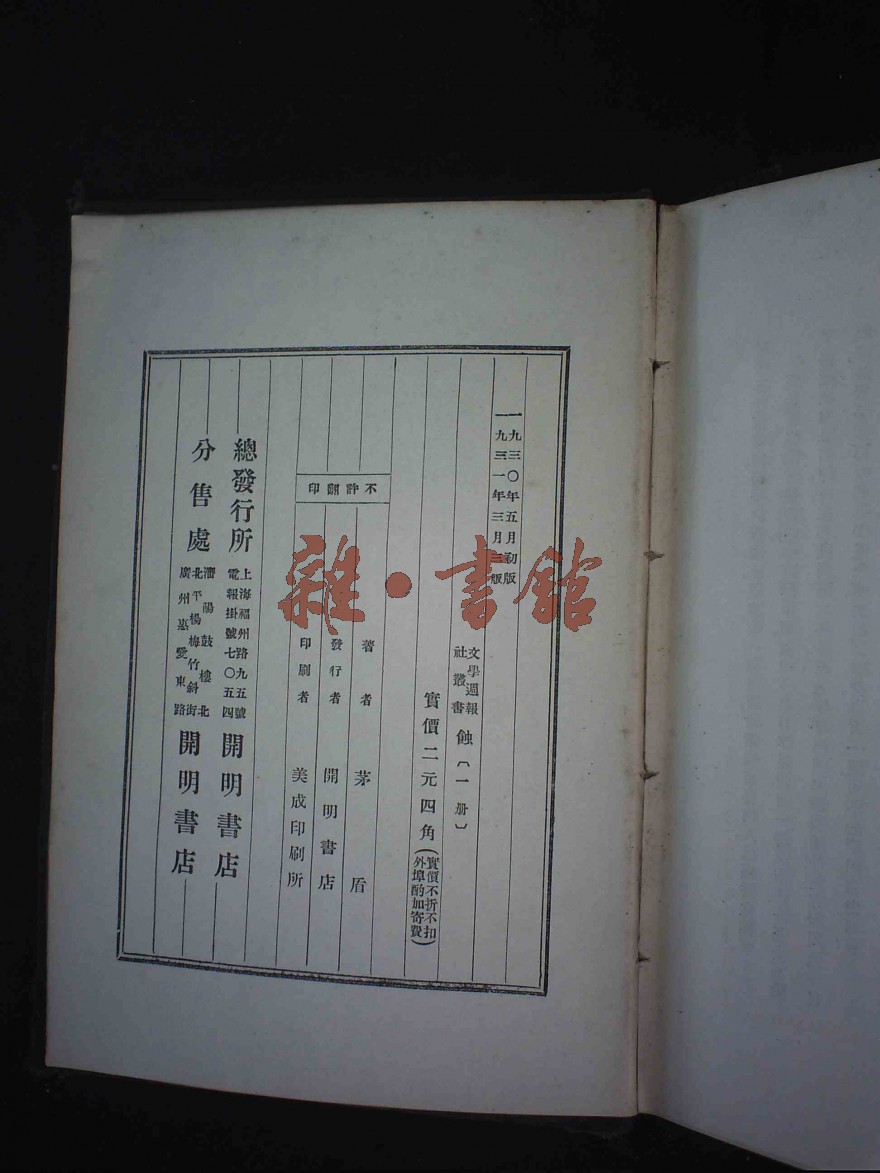 一九三〇年五月初版
一九三一年三月三版
文學週報社叢書 蝕〔一册〕
實價二元四角(實價不折不扣外埠酌加寄費)
不許翻印
著者 茅盾
發行者 開明書店
印刷者 美成印刷所
總發行所 上海福州路九五號 電報掛號七〇五四 開明書店
分售處 瀋陽鼓樓北 北平楊梅竹斜街 廣州惠愛東路 開明書店
雜·書館